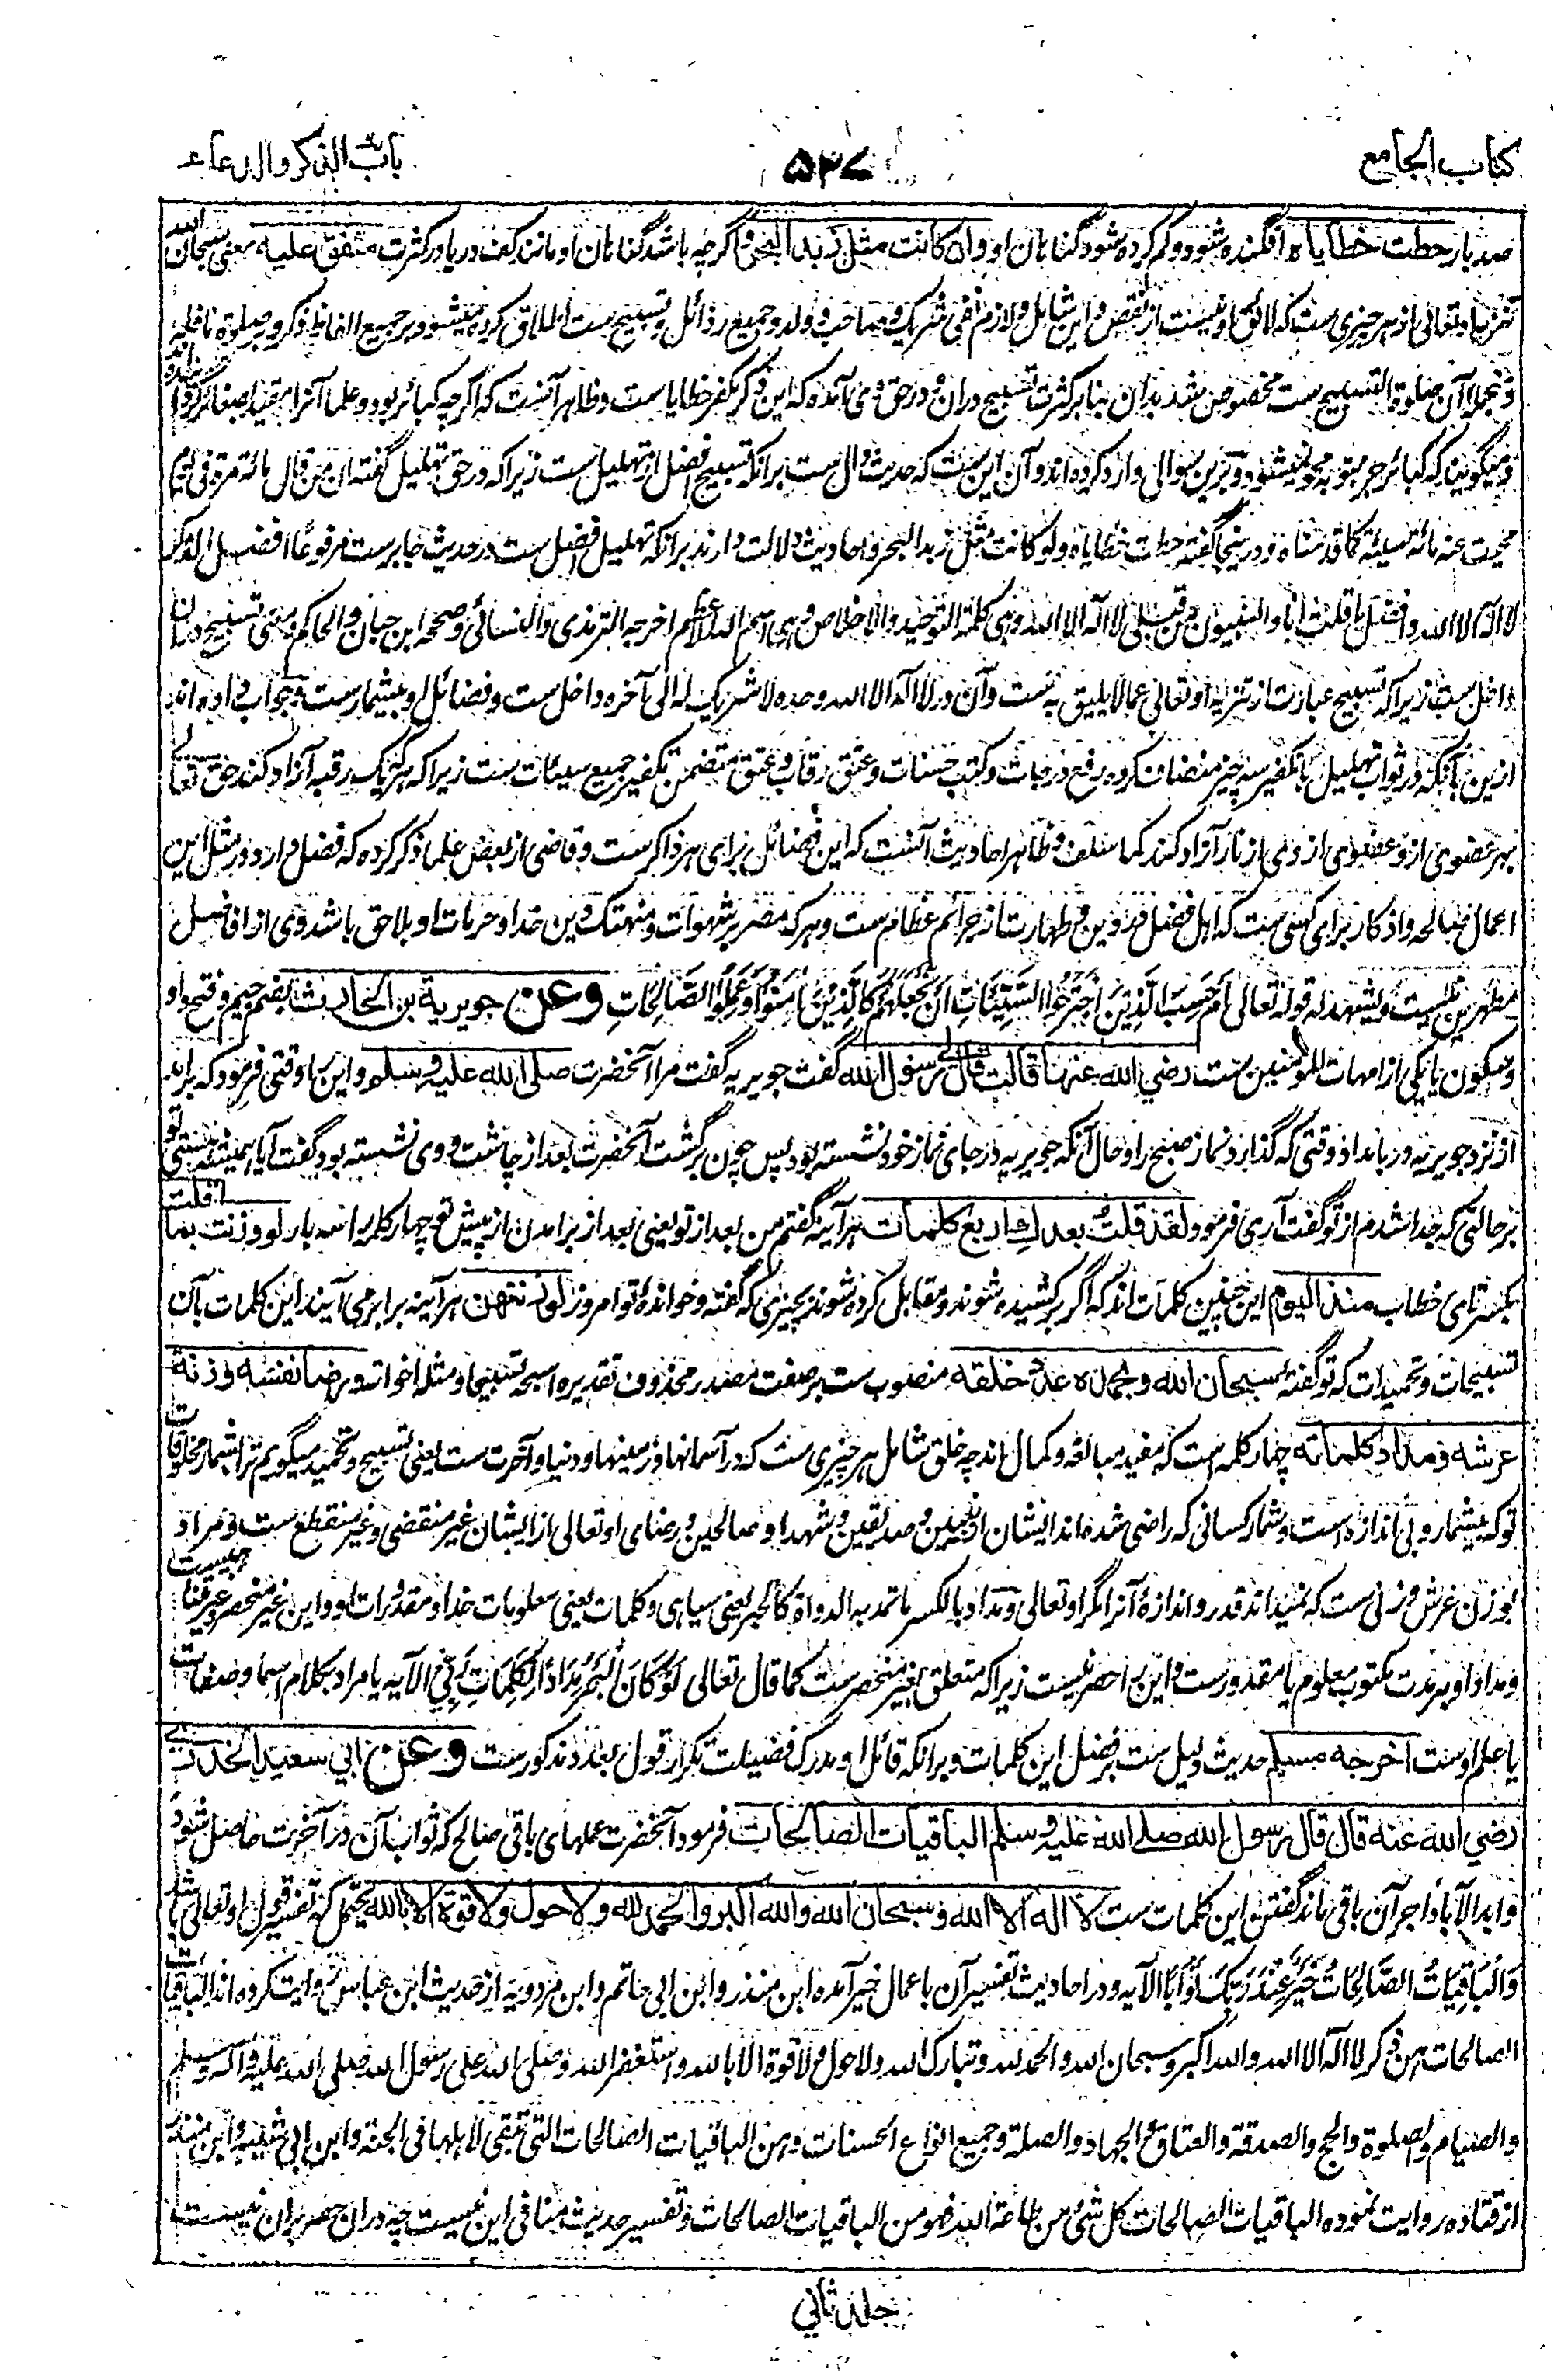 کتاب الجامع
۵۲۷
باب الذکر والدعاء
صد بار حطت خطایاه افگنده شود و کم کرده شود گناهان او وان کانت مثل زبد البحر و اگرچه باشد گناهان او مانند کف دریا در کثرت متفق علیه معنی سبحان الله
تنزیه او تعالی از هر چیزی ست که لائق او نیست از نقص و این شامل و لازم نفی شریک و صاحب و ولد و جمیع رذائل و تسبیح ست اطلاق کرده میشود بر جمیع الفاظ ذکر و بر صلوة نافله
و نجمله آن صلوة التسبیح ست مخصوص شد بدان بنا بر کثرت تسبیح دران و در حق وی آمده که این ذکر مکفر خطایا ست و ظاهر آنست که اگرچه کبائر بود و علما آنرا مقید بصغائر کرده اند
و میگویند که کبائر جز بتوبه محو نمیشود و برین سوالی وارد کرده اند و آن این ست که حدیث دال ست برانکه تسبیح افضل از تهلیل ست زیرا که در حق تهلیل گفته ان من قال مائة مرة فی یوم
محیت عنه مائة سیئة کما قدمناه و درینجا گفته حطت خطایاه ولو کانت مثل زبد البحر و احادیث دلالت دارند برانکه تهلیل افضل ست در حدیث جابر ست مرفوعا افضل الذکر
لا اله الا الله و افضل ما قلت انا والنبیون من قبلی لا اله الا الله و هی کلمة التوحید والاخلاص و هی اسم الله الاعظم اخرجه الترمذی والنسائی و صححه ابن حبان والحاکم و معنی تسبیح دران
داخل ست زیرا که تسبیح عبارت از تنزیه او تعالی عما لا یلیق به ست و آن در لا اله الا الله وحده لا شریک له الی آخره داخل ست و فضائل او بیشمار ست و جواب داده اند
ازین بآنکه در ثواب تهلیل با تکفیر سه چیز منضاف کرده رفع درجات و کتب حسنات و عتق رقاب و عتق متضمن تکفیر جمیع سیئات ست زیرا که هر که یک رقبه آزاد کند حق تعالی
بهر عضوی ازو عضوی از وی از نار آزاد کند کما سلف و ظاهر احادیث آنست که این فضائل برای هر ذاکر ست و قاضی از بعض علما ذکر کرده که فضل وارد در مثل این
اعمال صالحه و اذکار برای کسی ست که اهل فضل در دین و طهارت از جرائم عظام ست و هر که مصر بر شهوات و منهتک دین خدا و حرمات او بلا حق باشد وی از افاضل
مطهرین نیست و یشهد له قوله تعالی اَمْ حَسِبَ الَّذِیْنَ اجْتَرَحُوا السَّیِّئَاتِ اَنْ نَجْعَلَهُمْ کَالَّذِیْنَ اٰمَنُوْا وَعَمِلُوا الصَّالِحَاتِ وعن جویریة بن الحارث بضم جیم و فتح واو
و سکون یا یکی از امهات المؤمنین ست رضی الله عنها قالت قال لی رسول الله گفت جویریه گفت مرا آنحضرت صلی الله علیه وسلم و این را وقتی فرمود که بر آمد
از نزد جویریه در بامداد وقتی که گذارد نماز صبح را و حال آنکه جویریه در جای نماز خود نشسته بود پس چون برگشت آنحضرت بعد از چاشت و وی نشسته بود گفت آیا همیشه هستی تو
بر حالتی که جدا شدم از تو گفت آری فرمود لقد قلت بعدک اربع کلمات هر آینه گفتم من بعد از تو یعنی بعد از بر آمدن از پیش تو چهار کلمه را سه بار لو وزنت بما قلت
بکسر تای خطاب منذ الیوم این چنین کلمات اند که اگر برکشیده شوند و مقابل کرده شوند بچیزی که گفته و خوانده تو امروز لوزنتهن هر آینه برابر می آیند این کلمات بآن
تسبیحات و تحمیدات که تو گفته سبحان الله وبحمده عدد خلقه منصوب ست بر صفت مصدر محذوف تقدیره اسبحه تسبیحا و مثله اخواته ورضا نفسه وزنة
عرشه ومداد کلماته چهار کلمه است که مفید مبالغه و کمال اند چه خلق شامل هر چیزی ست که در آسمانها و زمینها و دنیا و آخرت ست یعنی تسبیح و تحمید میگویم ترا شمار مخلوقات
تو که بیشمار و بی اندازه است و شمار کسانی که راضی شده اند ایشان از نبیین و صدیقین و شهدا و صالحین و رضای او تعالی از ایشان غیر منقضی و غیر منقطع ست و مراد
بوزن عرش وزنی ست که نمیداند قدر و اندازه آنرا مگر او تعالی و مداد بالکسر ما تمد به الدواة کالحبر یعنی سیاهی و کلمات یعنی معلومات خدا و مقدورات او و این غیر منحصر و غیر متناهیست
و مداد او بر مدت مکتوب معلوم یا مقدور ست و این را حصر نیست زیرا که متعلق بغیر منحصر ست کما قال تعالی لَوْ کَانَ الْبَحْرُ مِدَادًا لِّکَلِمَاتِ رَبِّیْ الآیه یا مراد بکلام اسما و صفات
یا علم اوست اخرجه مسلم حدیث دلیل ست بر فضل این کلمات و برانکه قائل او مدرک فضیلت تکرار قول بعدد مذکور ست وعن ابی سعید الخدری
رضی الله عنه قال قال رسول الله صلی الله علیه وسلم الباقیات الصالحات فرمود آنحضرت عملهای باقی صالح که ثواب آن در آخرت حاصل شود
و ابد الآباد اجر آن باقی ماند گفتن این کلمات ست لا اله الا الله وسبحان الله والله اکبر والحمد لله ولا حول ولا قوة الا بالله یحتمل که تفسیر قول او تعالی باشد
وَالْبَاقِیَاتُ الصَّالِحَاتُ خَیْرٌ عِنْدَ رَبِّکَ ثَوَابًا الآیه و در احادیث تفسیر آن باعمال خیر آمده ابن منذر و ابن ابی حاتم و ابن مردویه از حدیث ابن عباس روایت کرده اند الباقیات
الصالحات هن ذکر لا اله الا الله والله اکبر وسبحان الله والحمد لله وتبارک الله ولا حول ولا قوة الا بالله واستغفر الله وصلی الله علی رسول الله صلی الله علیه وآله وسلم
والصیام والصلوة والحج والصدقة والعتاق والجهاد والصلة وجمیع انواع الحسنات وهن الباقیات الصالحات التی تبقی لاهلها فی الجنة و ابن ابی شیبه و ابن منذر
از قتاده روایت نموده الباقیات الصالحات کل شئ من طاعة الله فهو من الباقیات الصالحات و تفسیر حدیث منافی این نیست چه دران حصر بران نیست
جلد ثانی